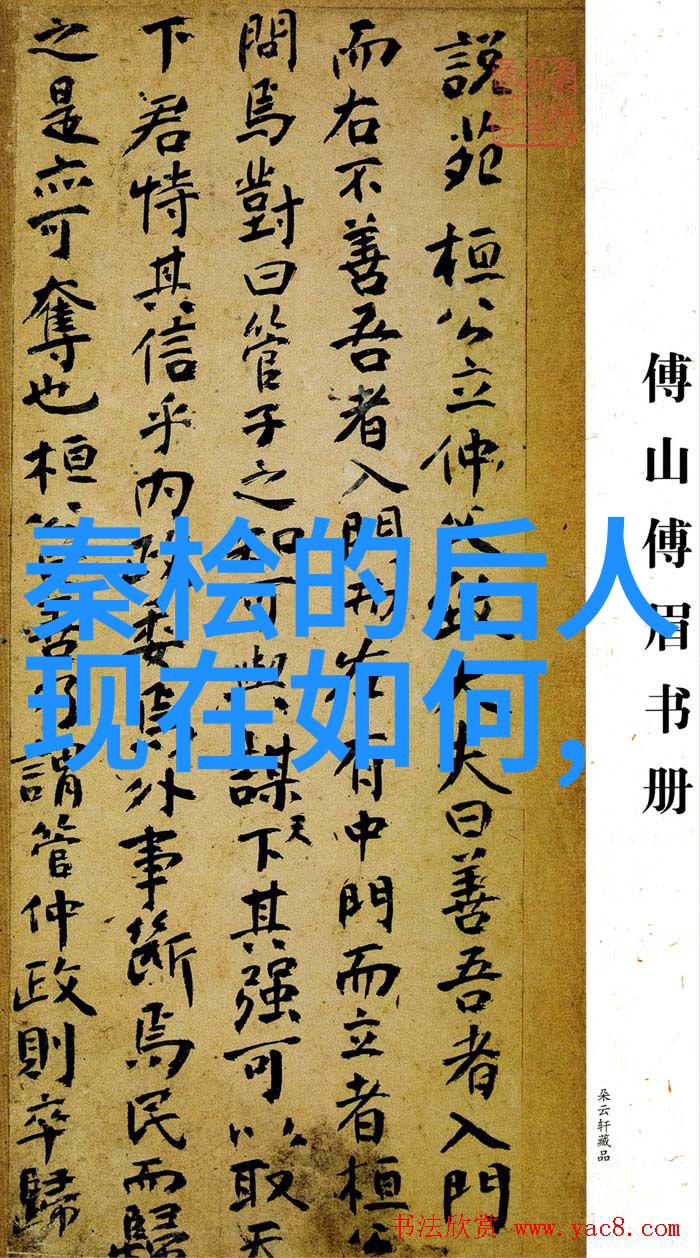 說苑 桓公立仲父致大夫曰善吾者入門
而右不善吾者入門而左有中門而立者桓公
問焉對曰管子之知可與謀天下其强可以取天
下君恃其信乎內政委焉外事斷焉民而歸
之是亦可奪也桓公曰善乃謂管仲政則卒歸
傅山傅眉书册
朵云轩藏品
秦桧的后人
现在如何,
书法欣赏 www.yac8.com